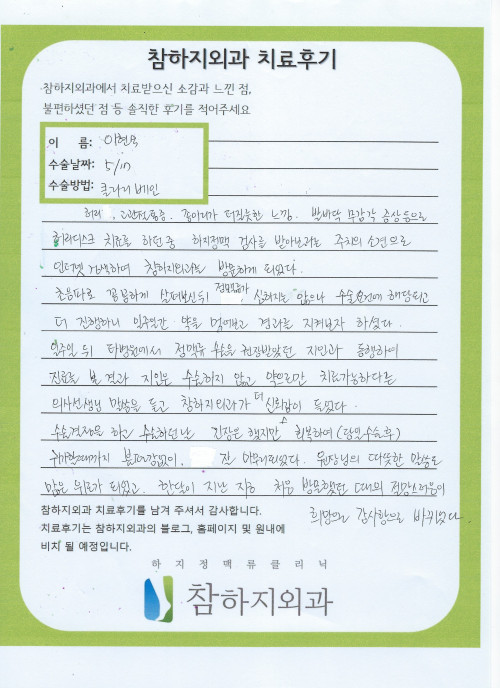 참하지외과 치료후기
참하지외과에서 치료받으신 소감과 느낀 점,
불편하셨던 점 등 솔직한 후기를 적어주세요
이 름:
수술날짜: 5/
수술방법: 클라리베인
허리, 고관절통증, 종아리가 터질듯한 느낌, 발바닥 무감각 증상등으로
허리디스크 치료를 하던 중 하지정맥 검사를 받아보라는 주치의 소견으로
인터넷 검색하여 참하지외과를 방문하게 되었다.
초음파로 꼼꼼하게 살펴보신 뒤 정맥류가 심하지는 않으나 수술요건에 해당되고
더 진행하니 일주일간 약을 먹어보고 경과를 지켜보자 하셨다.
일주일 뒤 타병원에서 정맥류 수술을 권장받았던 지인과 동행하여
진료를 본 결과 지인은 수술하지 않고 약으로만 치료가능하다른
의사선생님 말씀을 듣고 참하지외과가 더 신뢰감이 들었다.
수술결정을 하고 수술하던 날 긴장은 했지만 회복하여 (당일수술후)
귀가할때까지 불편감없이, 잘 마무리되었다. 원장님의 따뜻한 말씀도
많은 위로가 되었고, 한달이 지난 지금 처음 방문했던 때의 절망스러움이
희망으로 감사함으로 바뀌었다.
참하지외과 치료후기를 남겨 주셔서 감사합니다.
치료후기는 참하지외과의 블로그, 홈페이지 및 원내에
비치 될 예정입니다.
하지정맥류클리닉
참하지외과